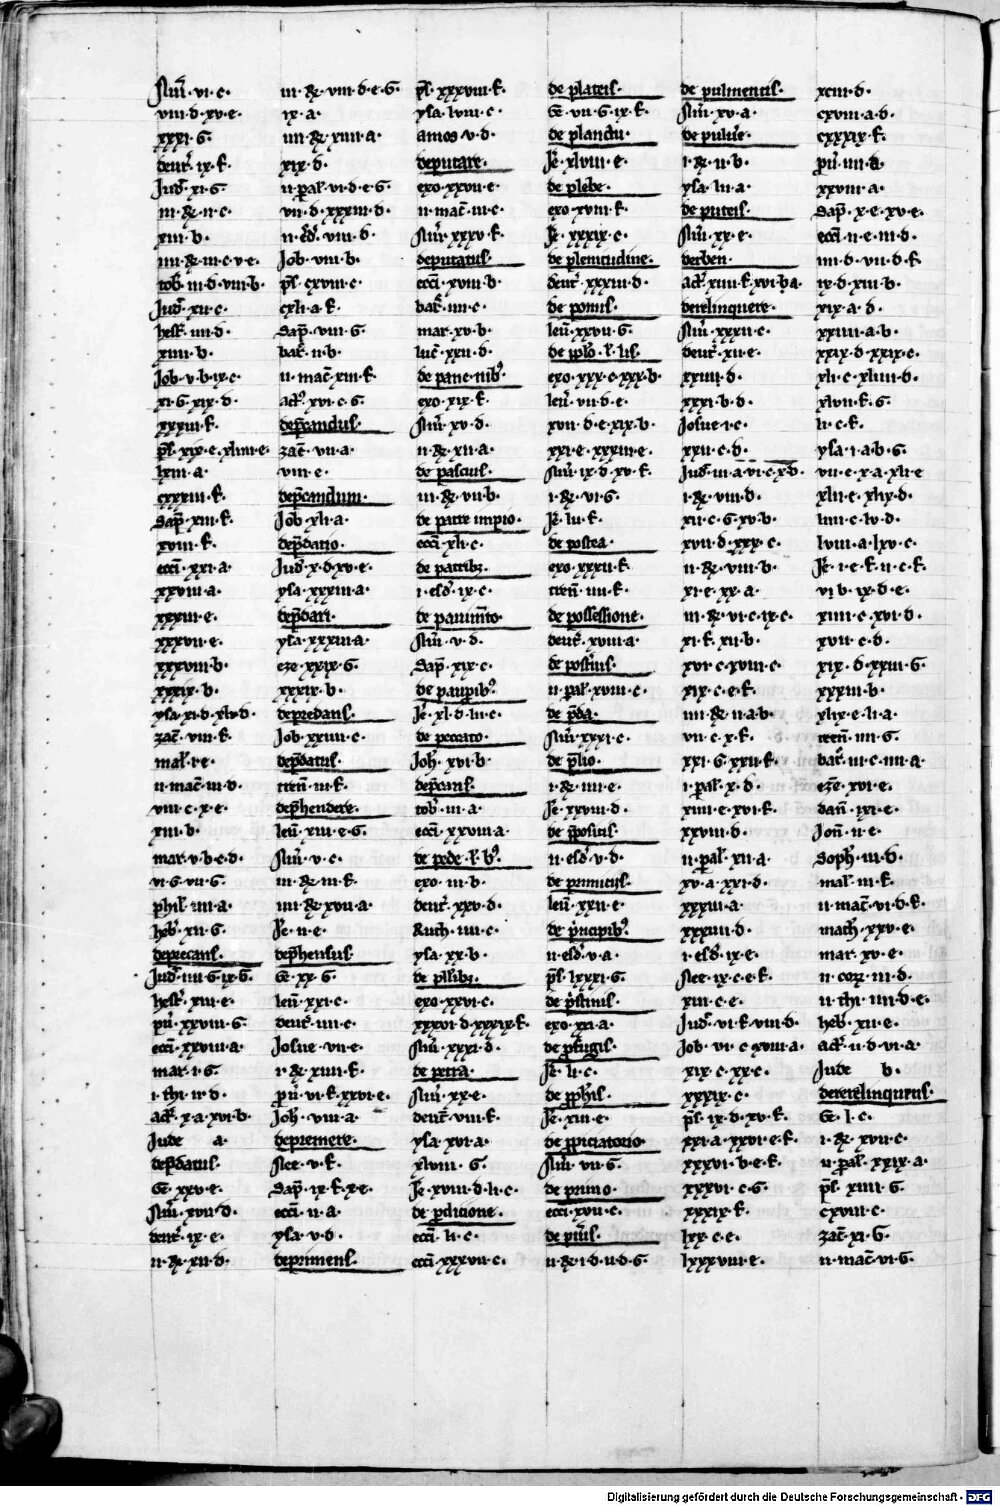 Nūi·vi·c·
viii·d·xv·e·
xxxi·G·
deut̄·ix·f·
Jud·xi·G·
iii·Rꝫ·ii·c·
xiii·b·
iiii·Rꝫ·iii·c·v·e·
tob·iii·d·viii·b·
Jud·xii·c·
hest·iiii·d·
xiiii·b·
Job·v·b·ix·c·
xi·G·xix·d·
xxxiii·f·
ps̄·xix·e·xliiii·e·
lxiii·a·
cxxxiii·f·
Sap̄·xiii·f·
xviii·f·
ecc̄i·xxi·a·
xxviii·a·
xxxiii·e·
xxxvii·e·
xxxviii·b·
xxxix·b·
ysa·xi·d·xlv·d·
zac̄·viii·f·
mal·i·e·
ii·mac̄·iii·d·
viii·c·x·e·
xiii·b·
mar·v·b·c·d·
vi·G·vii·G·
phil·iiii·a·
heb·xii·G·
deprecans·
Jud·iiii·G·ix·G·
hest·xiii·e·
pū·xxviii·G·
ecc̄i·xxviii·a·
mar·i·G·
i·thi·ii·d·
act·x·a·xvi·b·
Jude a·
dep̄datus·
Gē·xxv·e·
Nūi·xvii·d·
deut̄·ix·e·
ii·Rꝫ·xii·d·
iii·Rꝫ·viii·d·e·G·
ix·a·
iiii·Rꝫ·xiiii·a·
xix·d·
ii·pal·vi·d·e·G·
vii·d·xxxiii·d·
ii·ēd·viii·d·
Job·viii·b·
ps̄·cxviii·c·
cxli·a·f·
Sap̄·viii·G·
bar̄·ii·b·
ii·mac̄·xiii·f·
act·xvi·c·G·
dep̄candus·
zac̄·vii·a·
viii·e·
dep̄candum·
Job·xli·a·
dep̄datio·
Jud·x·d·xv·e·
ysa·xxxiii·a·
dep̄dari·
ysa·xxxiii·a·
eze·xxix·G·
xxxix·b·
depredans·
Job·xxiiii·c·
dep̄datus·
tren̄·iii·f·
dep̄hendere·
leui·xiii·e·G·
Nūi·v·c·
iii·Rꝫ·iii·f·
iiii·Rꝫ·xvii·a·
Je·ii·e·
dep̄hensus·
Gē·xx·G·
leui·xxi·c·
deut̄·iiii·c·
Josue·vii·e·
i·Rꝫ·xiiii·f·
pū·vi·f·xxvi·e·
Joh·viii·a·
depremere·
Nee·v·f·
Sap̄·ix·f·x·e·
ecc̄i·ii·a·
ysa·v·d·
deprimens·
ps̄·xxxviii·f·
ysa·lviii·c·
amos·v·d·
deputare·
exo·xxvii·e·
ii·mac̄·iii·c·
Nūi·xxxv·f·
deputatus·
ecc̄i·xviii·b·
bar̄·iiii·c·
mar·xv·b·
luc̄·xxii·d·
de pane·nib9·
exo·xix·f·
Nūi·xv·d·
ii·Rꝫ·xii·a·
de pascuis·
iii·Rꝫ·vii·b·
de patre impio·
ecc̄i·xli·c·
de patribꝫ·
i·esd·ix·c·
de pauim̄to·
Nūi·v·d·
Sap̄·xix·c·
de paupib9·
Je·xl·d·lii·c·
de peccato·
Joh·xvi·b·
dep̄cans·
tob·iii·a·
ecc̄i·xxviii·a·
de pede·l·b9·
exo·iii·b·
deut̄·xxv·d·
Ruth·iiii·c·
ysa·xx·b·
de pellibꝫ·
exo·xxvi·c·
xxxvi·d·xxxix·f·
Nūi·xxxi·d·
de petra·
Nūi·xx·e·
deut̄·viii·f·
ysa·xvi·a·
xlviii·G·
Je·xviii·d·li·c·
de pditione·
ecc̄i·li·c·
ecc̄i·xxxvii·c·
de plateis·
Gē·vii·G·ix·f·
de planctu·
Je·xlviii·e·
de plebe·
exo·xviii·f·
Je·xxxix·c·
de plenitudine·
deut̄·xxxiii·d·
de pomis·
leui·xxvii·G·
de pplo·l·lis·
exo·xxx·c·xxx·b·
leui·vii·d·e·
xvii·d·e·xix·b·
xxi·e·xxxiii·e·
Nūi·ix·d·xv·f·
i·Rꝫ·vi·G·
Je·lii·f·
de postea·
exo·xxxii·f·
tren̄·iiii·f·
de possessione·
deut̄·xviii·a·
de postius·
ii·pal·xviii·c·
de p̄da·
Nūi·xxxi·c·
de p̄lio·
i·Rꝫ·iiii·e·
Je·xxviii·d·
de p̄positis·
ii·esd·v·d·
de primiciis·
leui·xxii·e·
de p̄ncipib9·
ii·esd·v·a·
ps̄·lxxxi·G·
de p̄stinis·
exo·xxi·a·
de pfugis·
Je·li·c·
de pphis·
Je·xiii·e·
de ppiciatorio·
Nūi·vii·G·
de primo·
ecc̄i·xvii·c·
de piis·
ii·Rꝫ·i·d·ii·d·G·
de pulmentis·
Nūi·xv·a·
de puluere·
i·Rꝫ·ii·b·
ysa·lii·a·
de puteis·
Nūi·xx·e·
derben·
act·xiiii·f·xvi·b·a·
derelinquere·
Nūi·xxxii·c·
deut̄·xii·e·
xxiiii·d·
xxxi·b·d·
Josue·i·c·
xxii·c·d·
Jud·iii·a·vi·c·x·d·
i·Rꝫ·viii·d·
xii·c·G·xv·b·
xvii·d·xxx·c·
ii·Rꝫ·viii·b·
xi·e·xx·a·
iii·Rꝫ·vi·c·ix·c·
xi·f·xii·b·
xvi·c·xviii·c·
xix·c·e·f·
iiii·Rꝫ·ii·a·b·
vii·c·x·f·
xxi·G·xxii·f·
i·pal·x·d·
xiiii·e·xvi·f·
xxviii·d·
ii·pal·xii·a·
xv·a·xxi·d·
xxxiii·a·
xxxiiii·d·
i·esd·ix·e·
Nee·ix·c·e·f·
xiii·c·e·
Jud·vi·f·viii·d·
Job·vi·c·xviii·a·
xix·c·xx·c·
xxxix·c·
ps̄·ix·d·xv·f·
xxi·a·xxvi·e·f·
xxxvi·b·e·f·
xxxvi·c·G·
xxxix·f·
lxx·c·e·
lxxxviii·e·
xciii·d·
cxviii·a·d·
cxxxix·f·
pū·iiii·a·
xxviii·a·
Sap̄·x·e·xv·e·
ecc̄i·ii·e·iii·d·
iiii·d·vii·d·f·
ix·d·xiii·b·
xix·a·d·
xxiiii·a·b·
xxix·d·xxix·c·
xli·c·xliiii·d·
xlvii·f·G·
li·c·f·
ysa·i·a·b·G·
vii·e·x·a·xli·e
xlii·c·xlix·d·
liiii·c·lv·d·
lviii·a·lxv·c·
Je·i·e·f·ii·c·f·
vi·b·ix·d·e·
xiiii·c·xvi·d·
xvii·c·d·
xix·d·xxiii·G·
xxxiii·b·
xlix·e·li·a·
tren̄·iiii·G·
bar̄·iii·c·iiii·a·
ezē·xvi·e·
dan̄·ixi·e·
Jon̄·ii·e·
Soph·iii·b·
mal·iii·f·
ii·mac̄·vi·d·f·
math·xxv·e·
mar·xv·e·
ii·cor·iii·d·
ii·thi·iiii·d·e·
heb·xii·e·
act·ii·d·vi·a·
Jude b·
derelinquens·
Gē·l·c·
i·Rꝫ·xvii·c·
ii·pal·xxix·a·
ps̄·xiiii·G·
cxviii·c·
zac̄·xi·G·
ii·mac̄·vi·G·
Digitalisierung gefördert durch die Deutsche Forschungsgemeinschaft - DFG